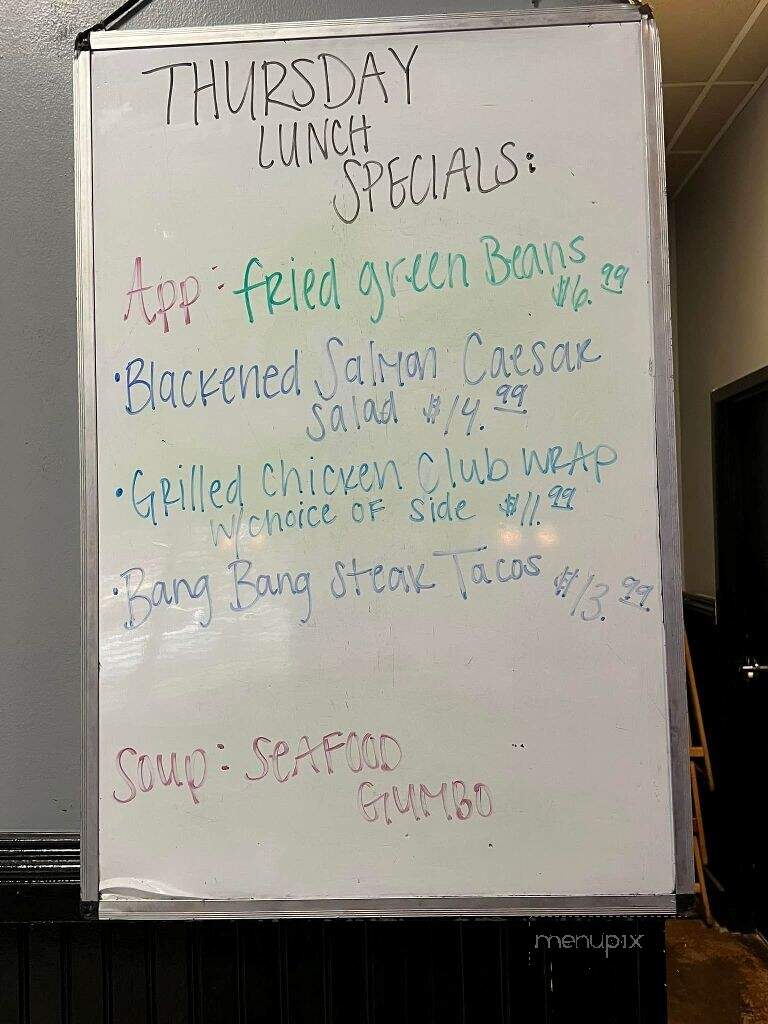 THURSDAY
LUNCH
SPECIALS:
App: fried green Beans
$6.99
•Blackened Salmon Caesar
Salad $14.99
•Grilled Chicken Club WRAP
w/choice OF side $11.99
•Bang Bang Steak Tacos $13.99
Soup: SEAFOOD
GUMBO
menupix